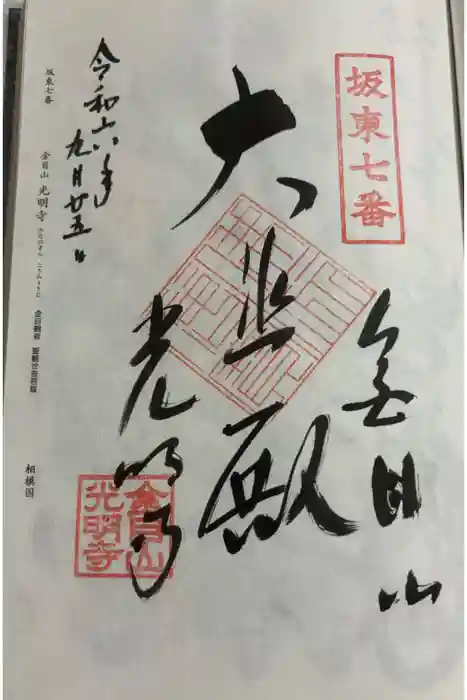 坂東七番
金目山
大悲殿
光明寺
金目山
光明寺
令和六年
九月廿五日
坂東七番
金目山 光明寺
金目観音
聖観世音菩薩
相模国